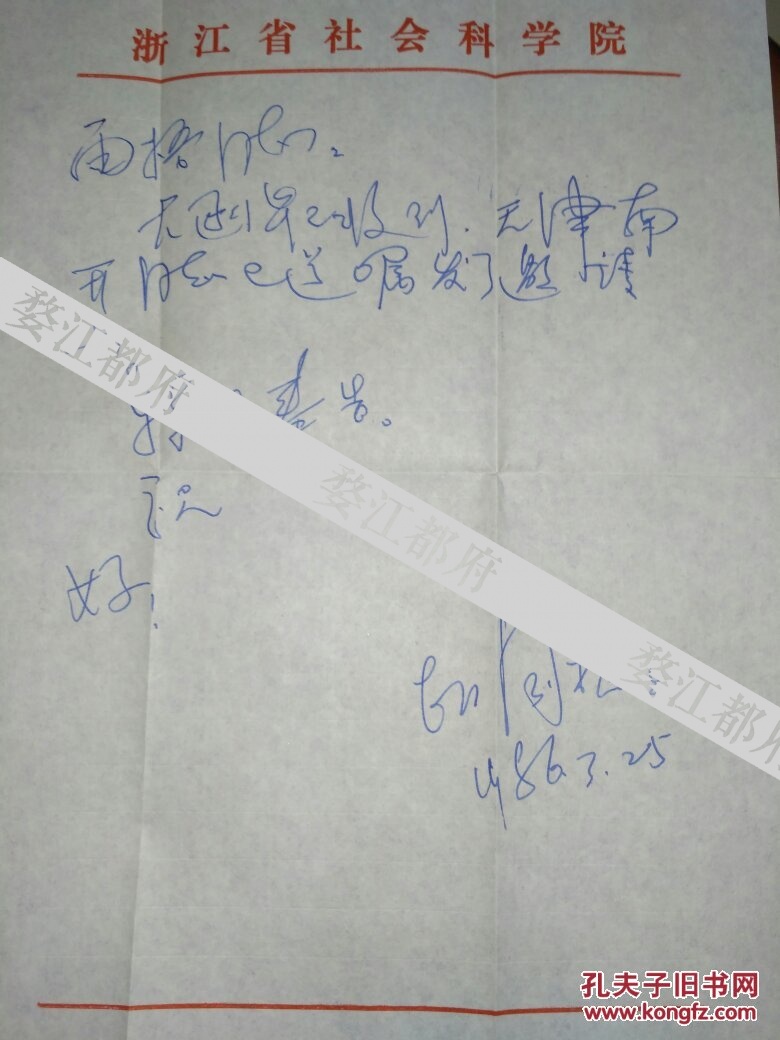 浙江省社会科学院
雨梧同志:
大函早已收到.天津南
开同志已遵嘱发了邀请
专告。
祝
好!
1986.3.25
婺江都府
婺江都府
婺江都府
孔夫子旧书网
www.kongfz.com